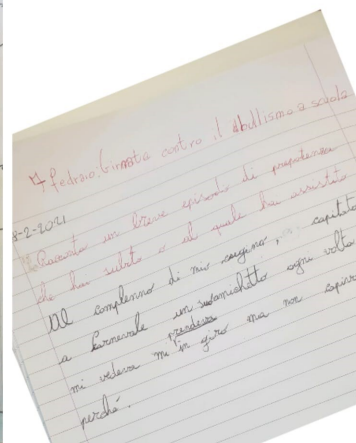 7 febraio, Girnata contro il bullismo a scuola
8-2-2021
Racconta un breve episodio di prepotenza
che hai subito o al quale hai assistito
Al complenno di mio cugino, capitato
a Carnevale un suo amichetto ogni volta
mi vedeva mi prendeva in giro ma non capivo
perché.